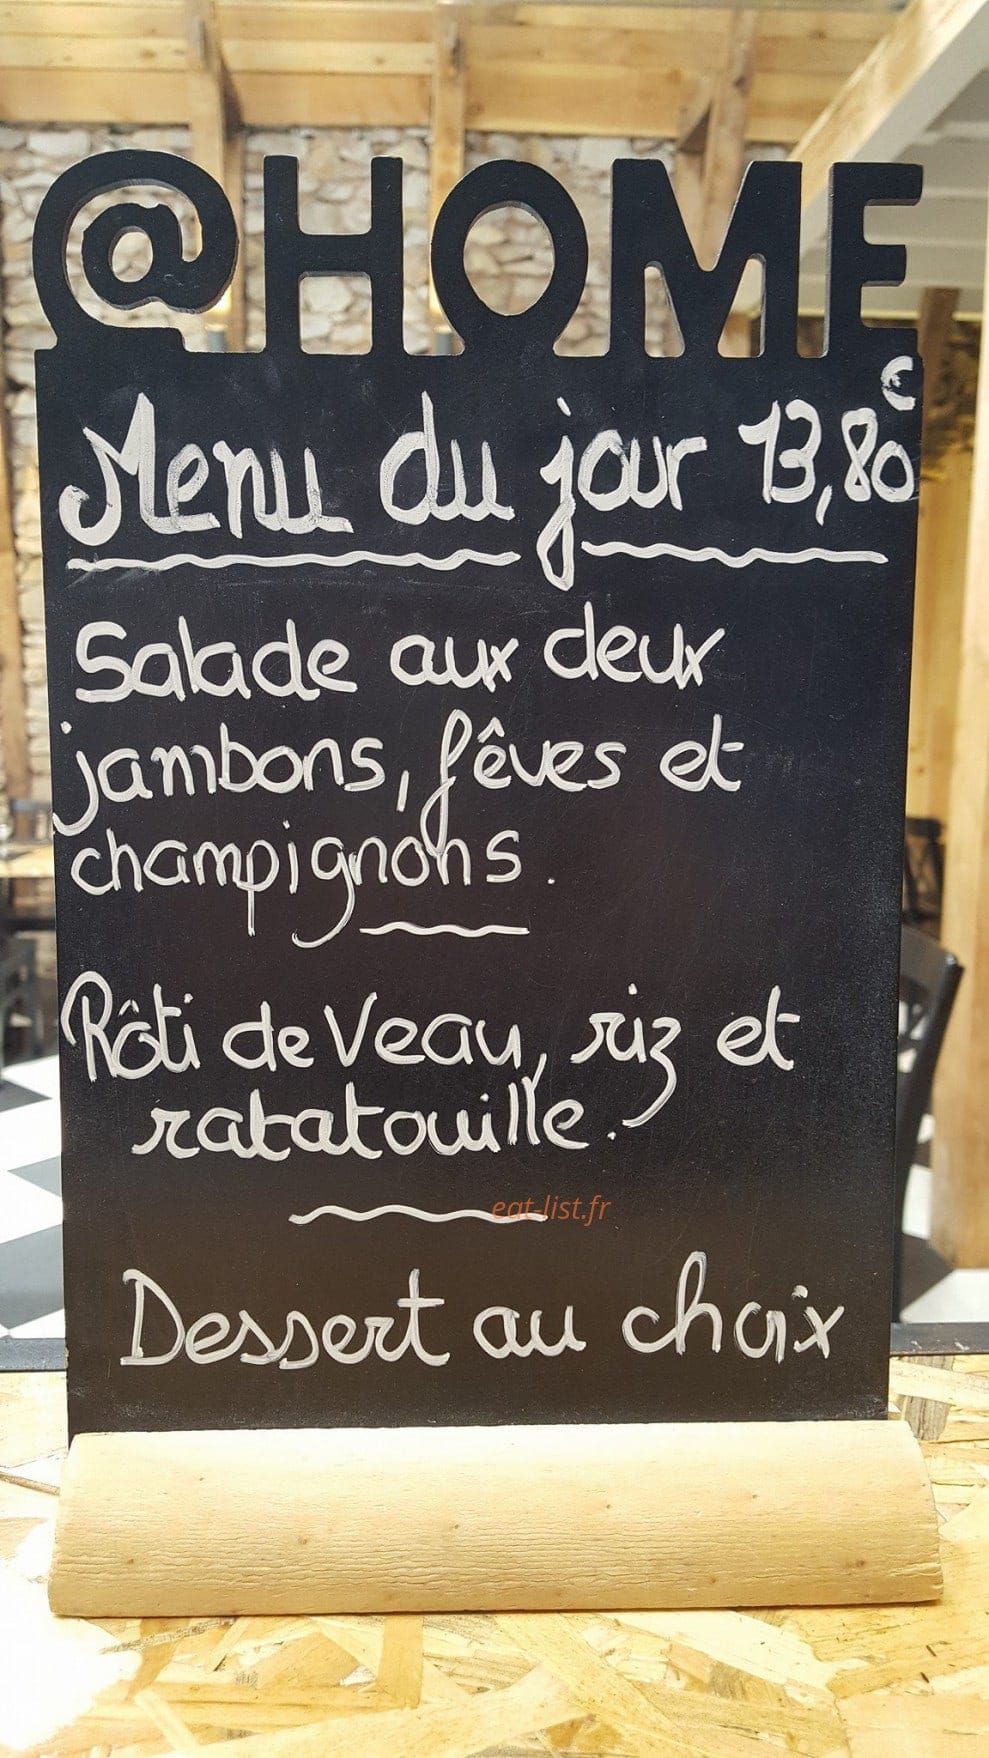 @HOME
Menu du jour 13,80€
Salade aux deux
jambons, fêves et
champignons.
Rôti de Veau, riz et
ratatouille.
eat-list.fr
Dessert au choix